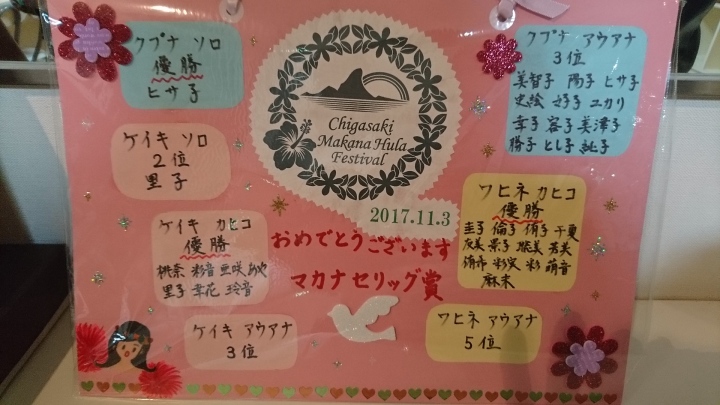 クプナ ソロ
優勝
ヒサ子
ケイキ ソロ
2位
里子
ケイキ カヒコ
優勝
桃奈 彩音 亜咲
里子 幸花 玲音
ケイキ アウアナ
3位
Chigasaki
Makana Hula
Festival
2017.11.3
おめでとうございます
マカナセリッグ賞
クプナ アウアナ
3位
美智子 陽子 ヒサ子
史絵 好子 ユカリ
幸子 容子 美澤子
勝子 とし子 紀子
ワヒネ カヒコ
優勝
圭子 倫子 侑子 千夏
景子
彩実 彩 萌音
麻未
ワヒネ アウアナ
5位